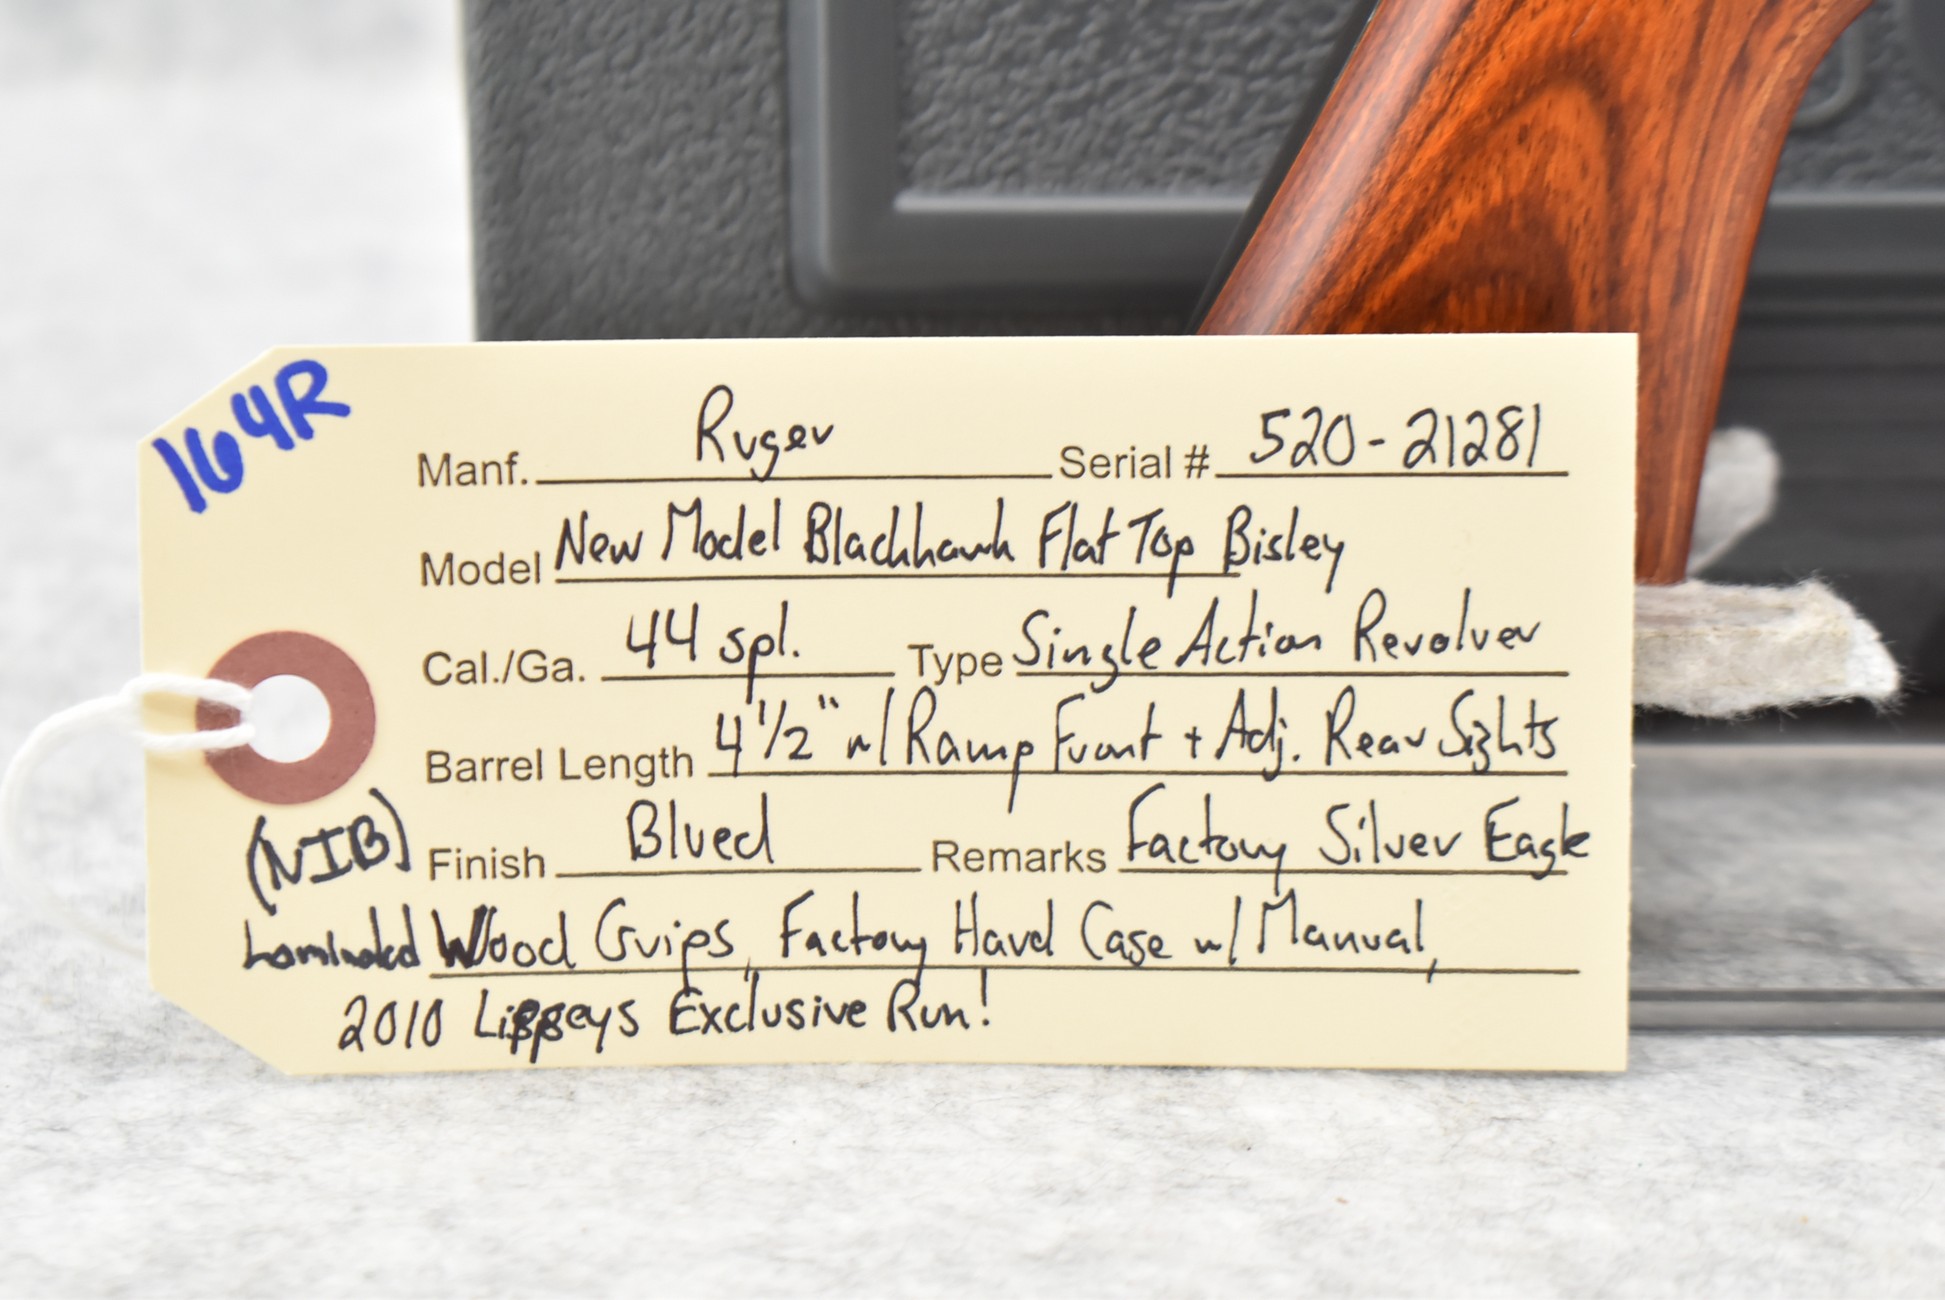 164R
Manf. Ruger Serial # 520-21281
Model New Model Blackhawk Flat Top Bisley
Cal./Ga. 44 spl. Type Single Action Revolver
Barrel Length 4 1/2" w/ Ramp Front + Adj. Rear Sights
(NIB) Finish Blued Remarks Factory Silver Eagle
Laminated Wood Grips, Factory Hard Case w/ Manual,
2010 Lipseys Exclusive Run!